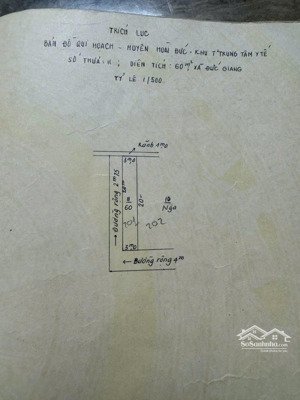 TRÍCH LỤC
BẢN ĐỒ QUI HOẠCH - HUYỆN HOÀI ĐỨC - KHU TRUNG TÂM Y TẾ
SỐ THỬA: 11 ; DIỆN TÍCH: 60m² XÃ ĐỨC GIANG
TỶ LỆ 1/500.
Rãnh 1m0
3m0
Đường rộng 2m
20m
11
60
20m
10
Nga
201
202
3m0
← Đường rộng 4m
SoSanhNha.com